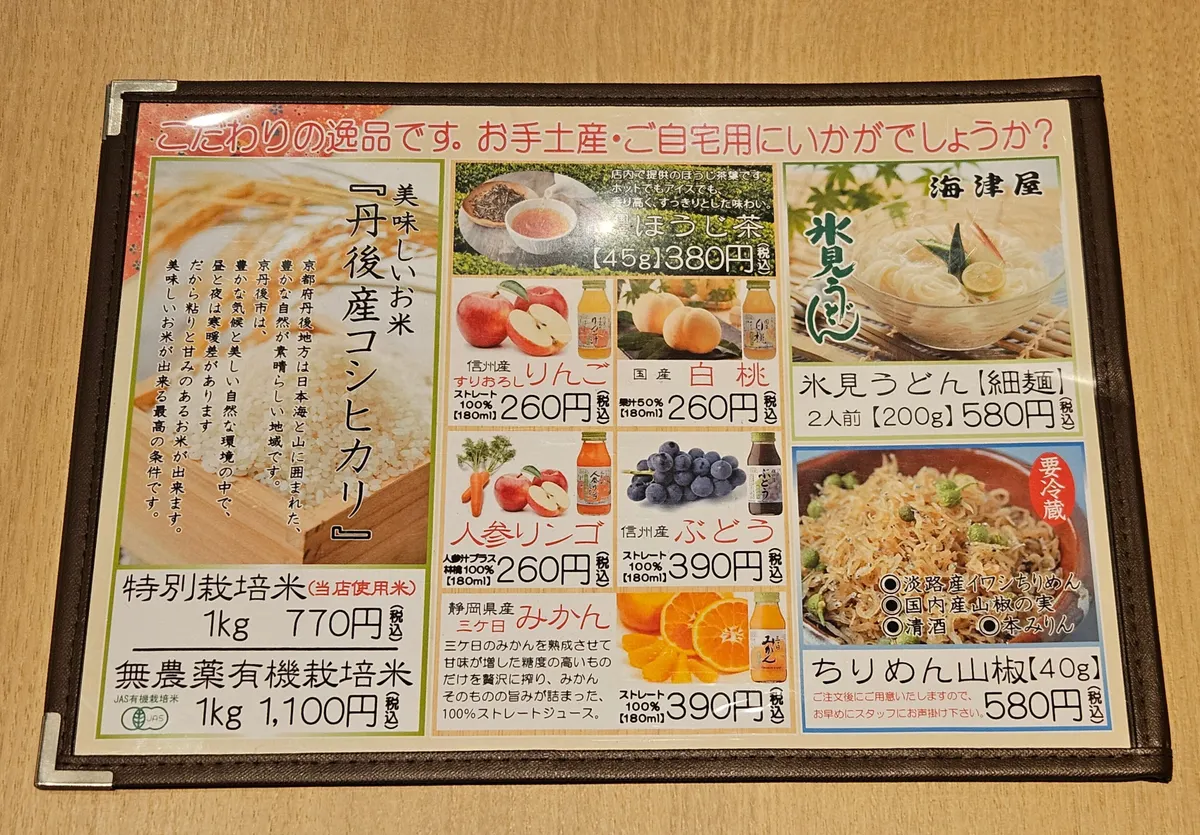 こだわりの逸品です。お手土産・ご自宅用にいかがでしょうか？
美味しいお米
『丹後産コシヒカリ』
京都府丹後地方は日本海と山に囲まれた、
豊かな自然が素晴らしい地域です。
京丹後市は、
豊かな気候と美しい自然な環境の中で、
昼と夜は寒暖差があります
だから粘りと甘みのあるお米が出来ます。
美味しいお米が出来る最高の条件です。
特別栽培米(当店使用米)
1kg 770円(税込)
無農薬有機栽培米
JAS有機栽培米
JAS
1kg 1,100円(税込)
店内で提供のほうじ茶葉です
ホットでもアイスでも、
香り高く、すっきりとした味わい。
ほうじ茶
【45g】380円(税込)
りんご
信州産
すりおろしりんご
ストレート
100%
【180ml】260円(税込)
白桃
国産 白桃
果汁50%
【180ml】260円(税込)
人参りんご
人参リンゴ
人参汁プラス
林檎100%
【180ml】260円(税込)
ぶどう
信州産 ぶどう
ストレート
100%
【180ml】390円(税込)
静岡県産
三ケ日 みかん
三ケ日のみかんを熟成させて
甘味が増した糖度の高いもの
だけを贅沢に搾り、みかん
そのものの旨みが詰まった、
100%ストレートジュース。
みかん
ストレート
100%
【180ml】390円(税込)
海津屋
氷見うどん
氷見うどん【細麺】
2人前【200g】580円(税込)
要冷蔵
◉淡路産イワシちりめん
◉国内産山椒の実
◉清酒 ◉本みりん
ちりめん山椒【40g】
ご注文後にご用意いたしますので、
お早めにスタッフにお声掛け下さい。
580円(税込)